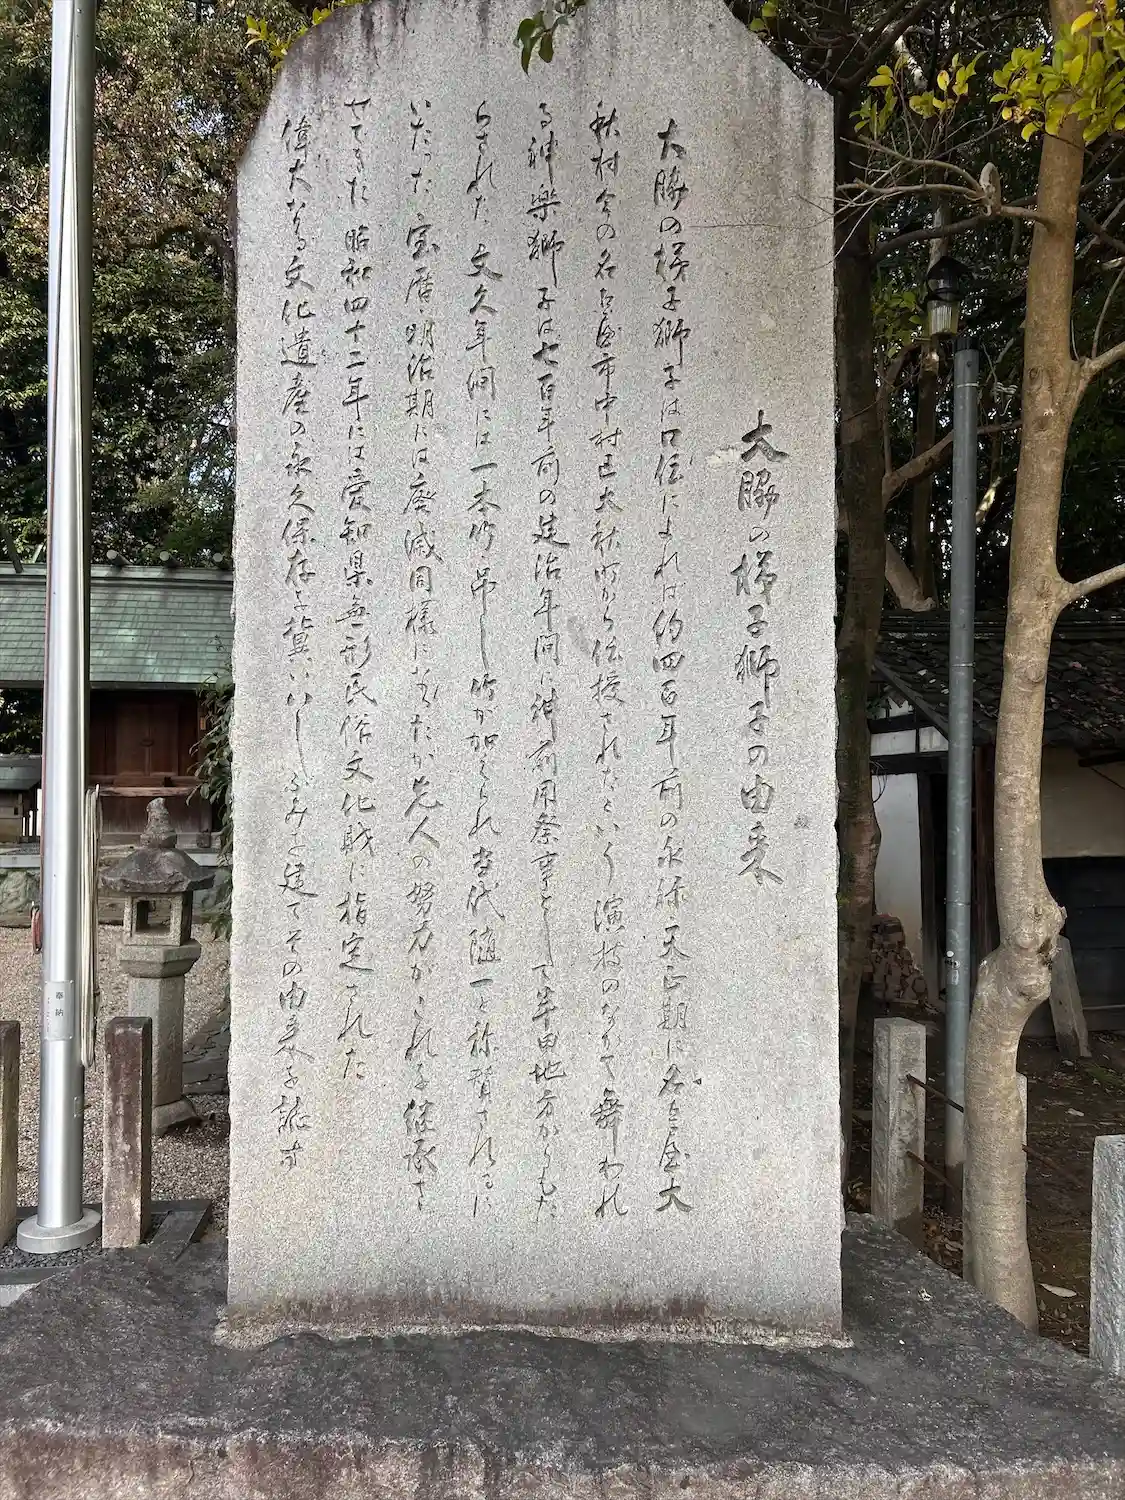 大脇の梯子獅子の由来
大脇の梯子獅子は口伝によれば約四百年前の永禄・天正期に名古屋大
秋村今の名古屋市中村区大秋町から伝授されたという 演技のなかで舞われ
る神楽獅子は七百年前の建治年間に神前用祭事として半田地方からもた
らされた 文久年間には一本竹吊し竹が加えられ当代随一と称賛されるに
いたった 宝暦・明治期には廃滅同様になったが先人の努力がされる 継承さ
せてきた 昭和四十二年には愛知県無形民俗文化財に指定された
偉大なる文化遺産の永久保存を冀い いしぶみを建てその由来を誌す
奉納